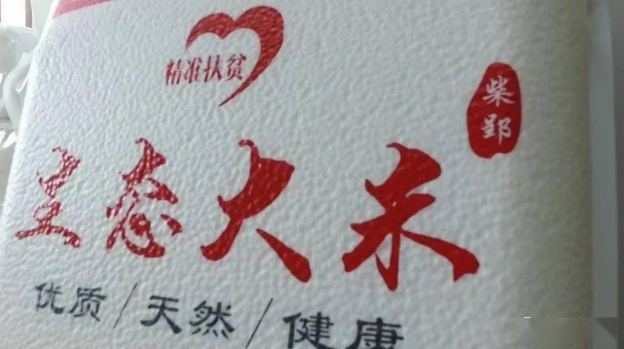 精准扶贫
柴郢
生态大米
优质/天然/健康